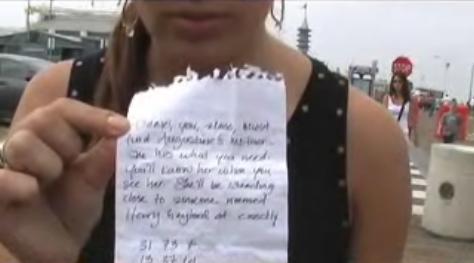 you, alone, must
find Augustine's mother.
She has what you need.
You'll know her when you
see her. She'll be standing
close to someone named
Henry Gaylord at exactly
31 73
13 37
STOP